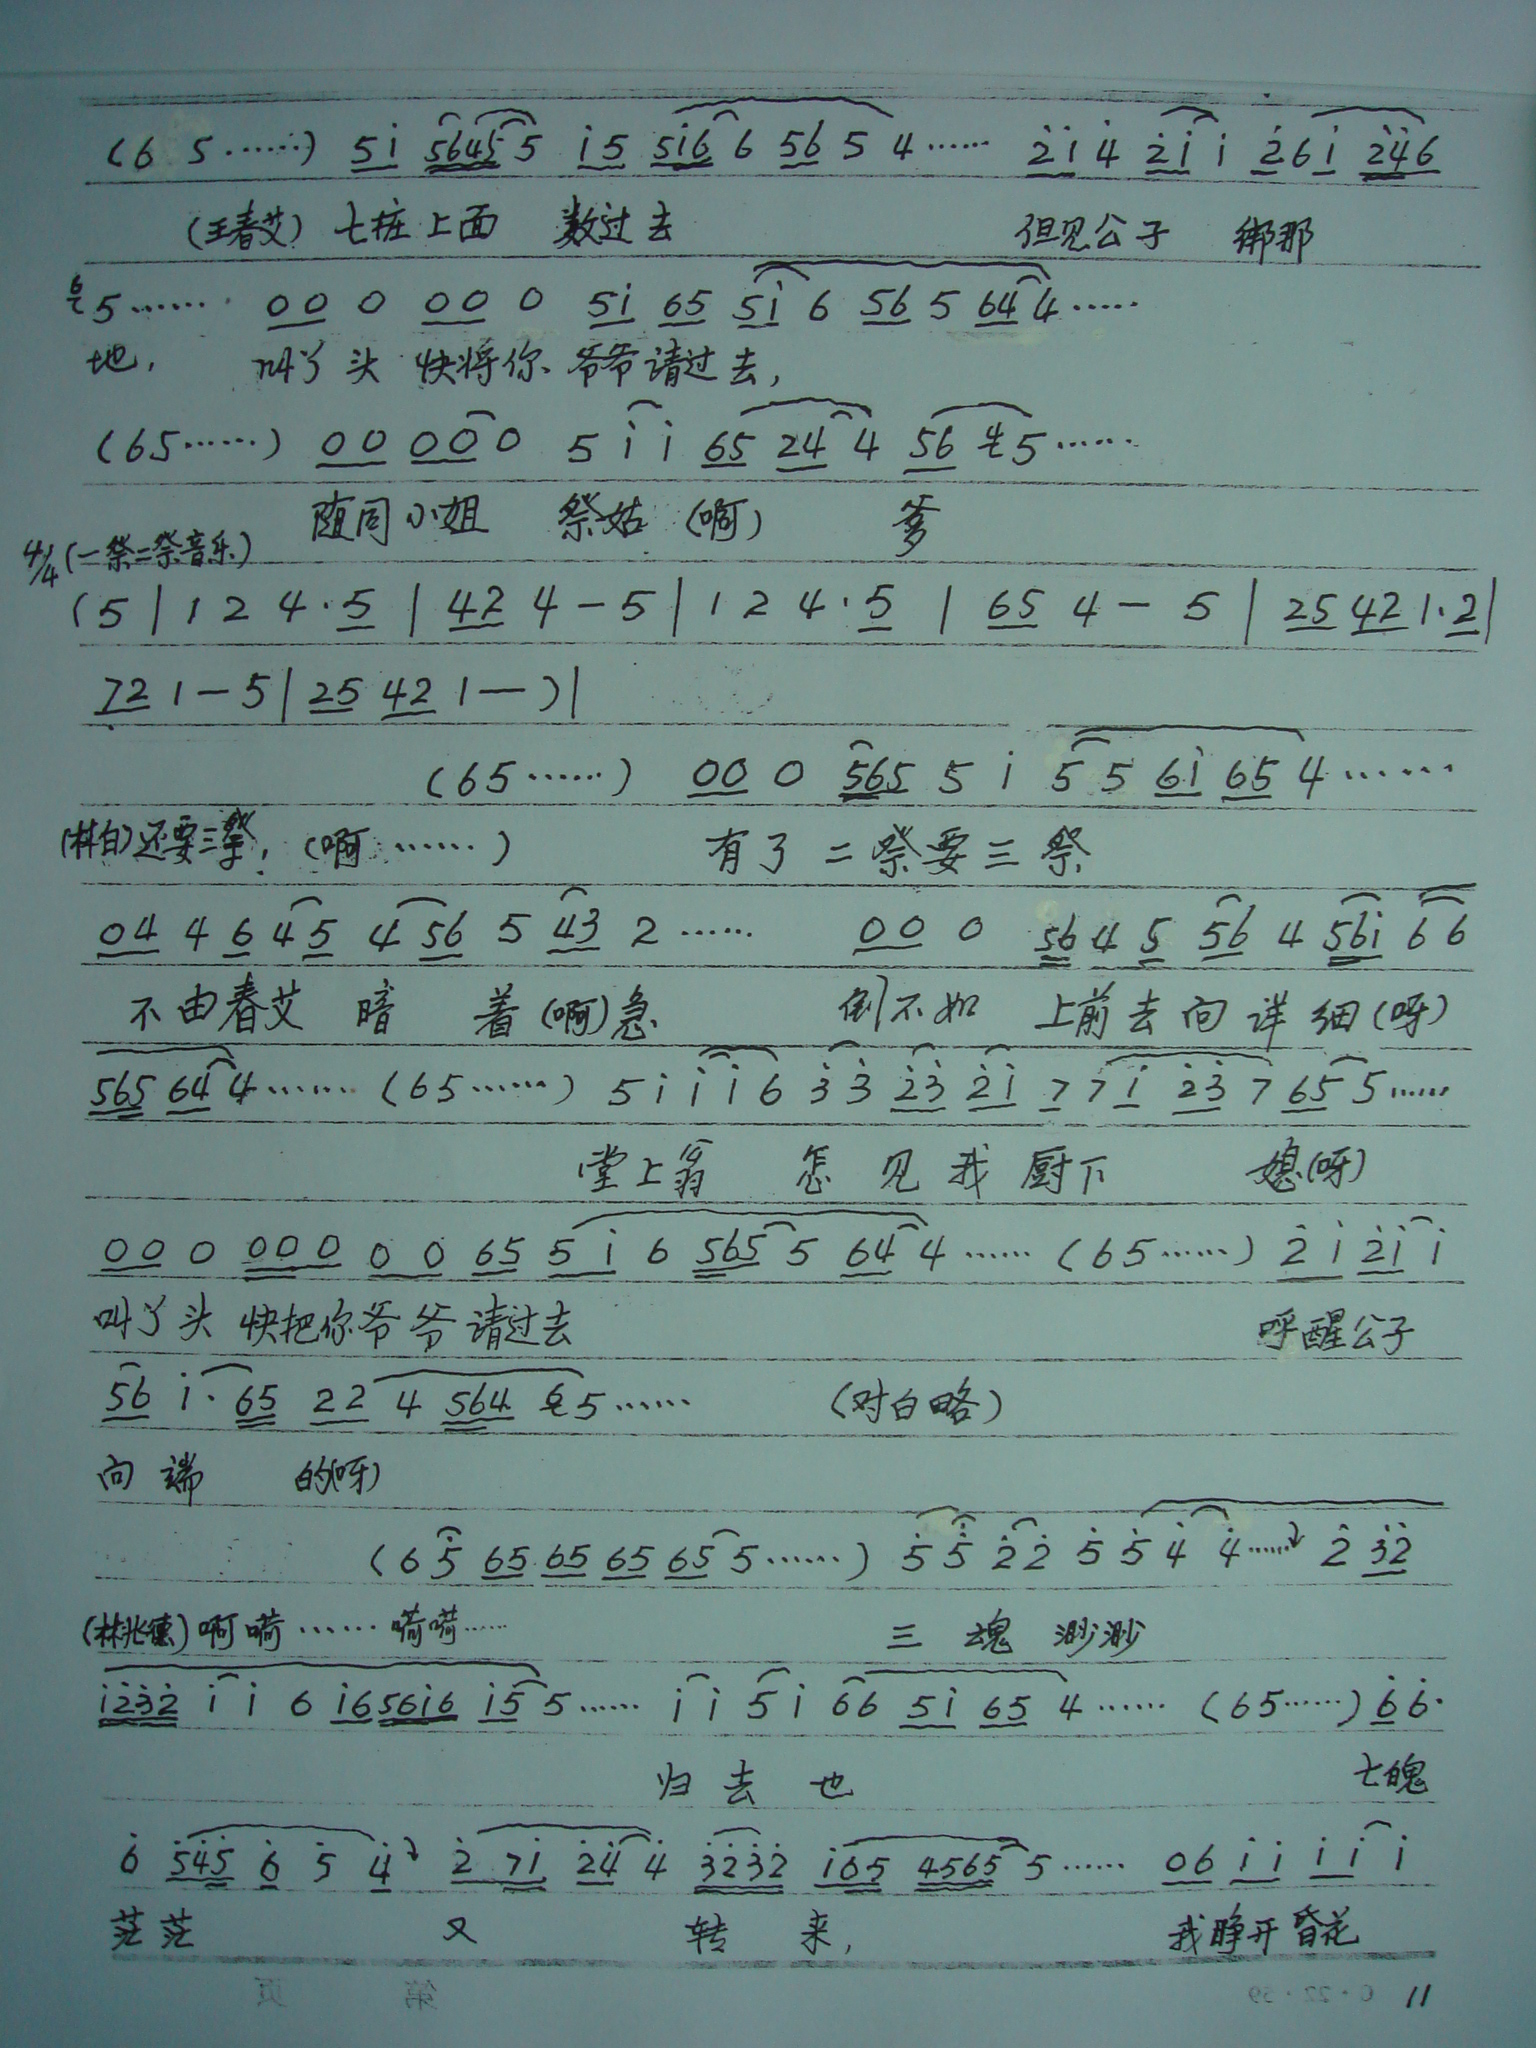 (6 5……) 5i 56455 i5 5i6 6 56 5 4…… 2i 4 2i i 26i 246
(王春艾) 七桩上面 数过去 但见公子 绑那
5…… 00 0 00 0 5i 65 5i 6 56 5 64 4……
地, 叫丫头 快将你 爷爷请过去,
(65……) 00 000 5 i i 65 24 4 56 5……
随同小姐 祭姑 (啊) 爹
4/4 (一祭二祭音乐)
(5 | 1 2 4·5 | 42 4 - 5 | 1 2 4·5 | 65 4 - 5 | 25 42 1·2 |
72 1 - 5 | 25 42 1 — ) |
(65……) 00 0 565 5 i 5 5 6i 65 4……
(林白)还要三祭, (啊……) 有了二祭要三祭
04 4 6 4 5 4 56 5 43 2…… 00 0 56 4 5 56 4 56i 6 6
不由春艾 暗 着(啊)急 倒不如 上前去问详细(呀)
565 64 4…… (65……) 5 i i i 6 3 3 23 2i 7 7 i 23 7 65 5……
堂上翁 怎见我厨下 媳(呀)
00 0 000 0 0 65 5 i 6 565 5 64 4…… (65……) 2 i 2i i
叫丫头 快把你爷爷请过去 呼醒公子
56 i·65 22 4 564 5…… (对白略)
问端 的(呀)
(6 5 65 65 65 65 5……) 5 5 2 2 5 5 4 4…… 2 32
(林兆德) 啊嗬……嗬嗬…… 三 魂 渺渺
i232 i i 6 i6 56i6 i5 5…… i i 5 i 66 5i 65 4…… (65……) 6 6·
归 去 也 七魄
6 545 6 5 4 2 7i 24 4 3232 i65 4565 5…… 06 i i i i i
茫茫 又 转 来, 我睁开昏花
第 页 C·22·59 11